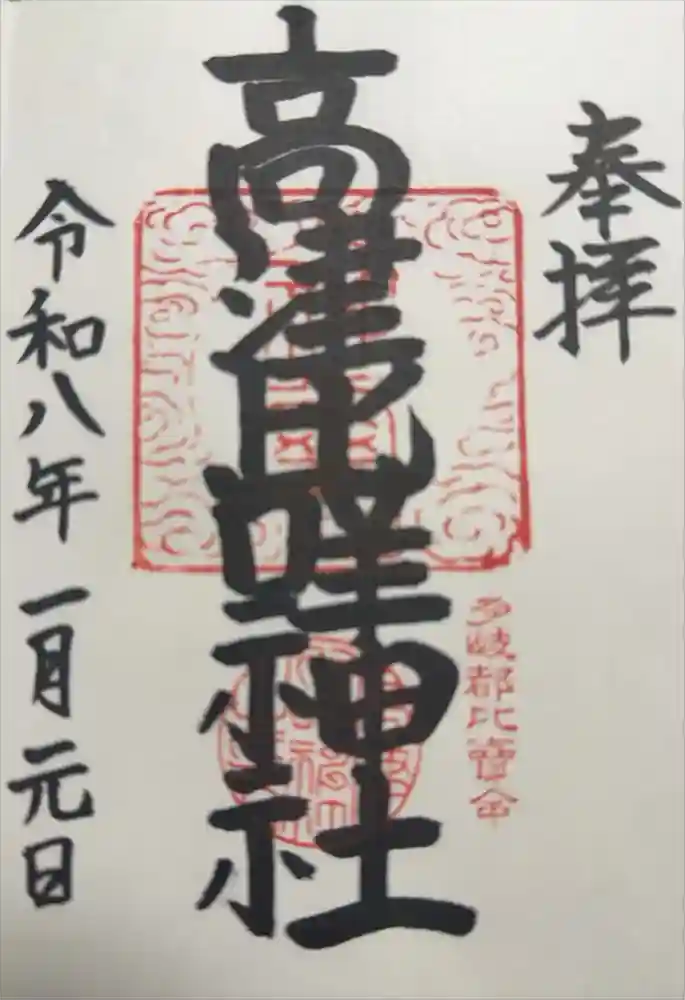 奉拝
高津比咩神社
多岐都比賣命
令和八年一月元日